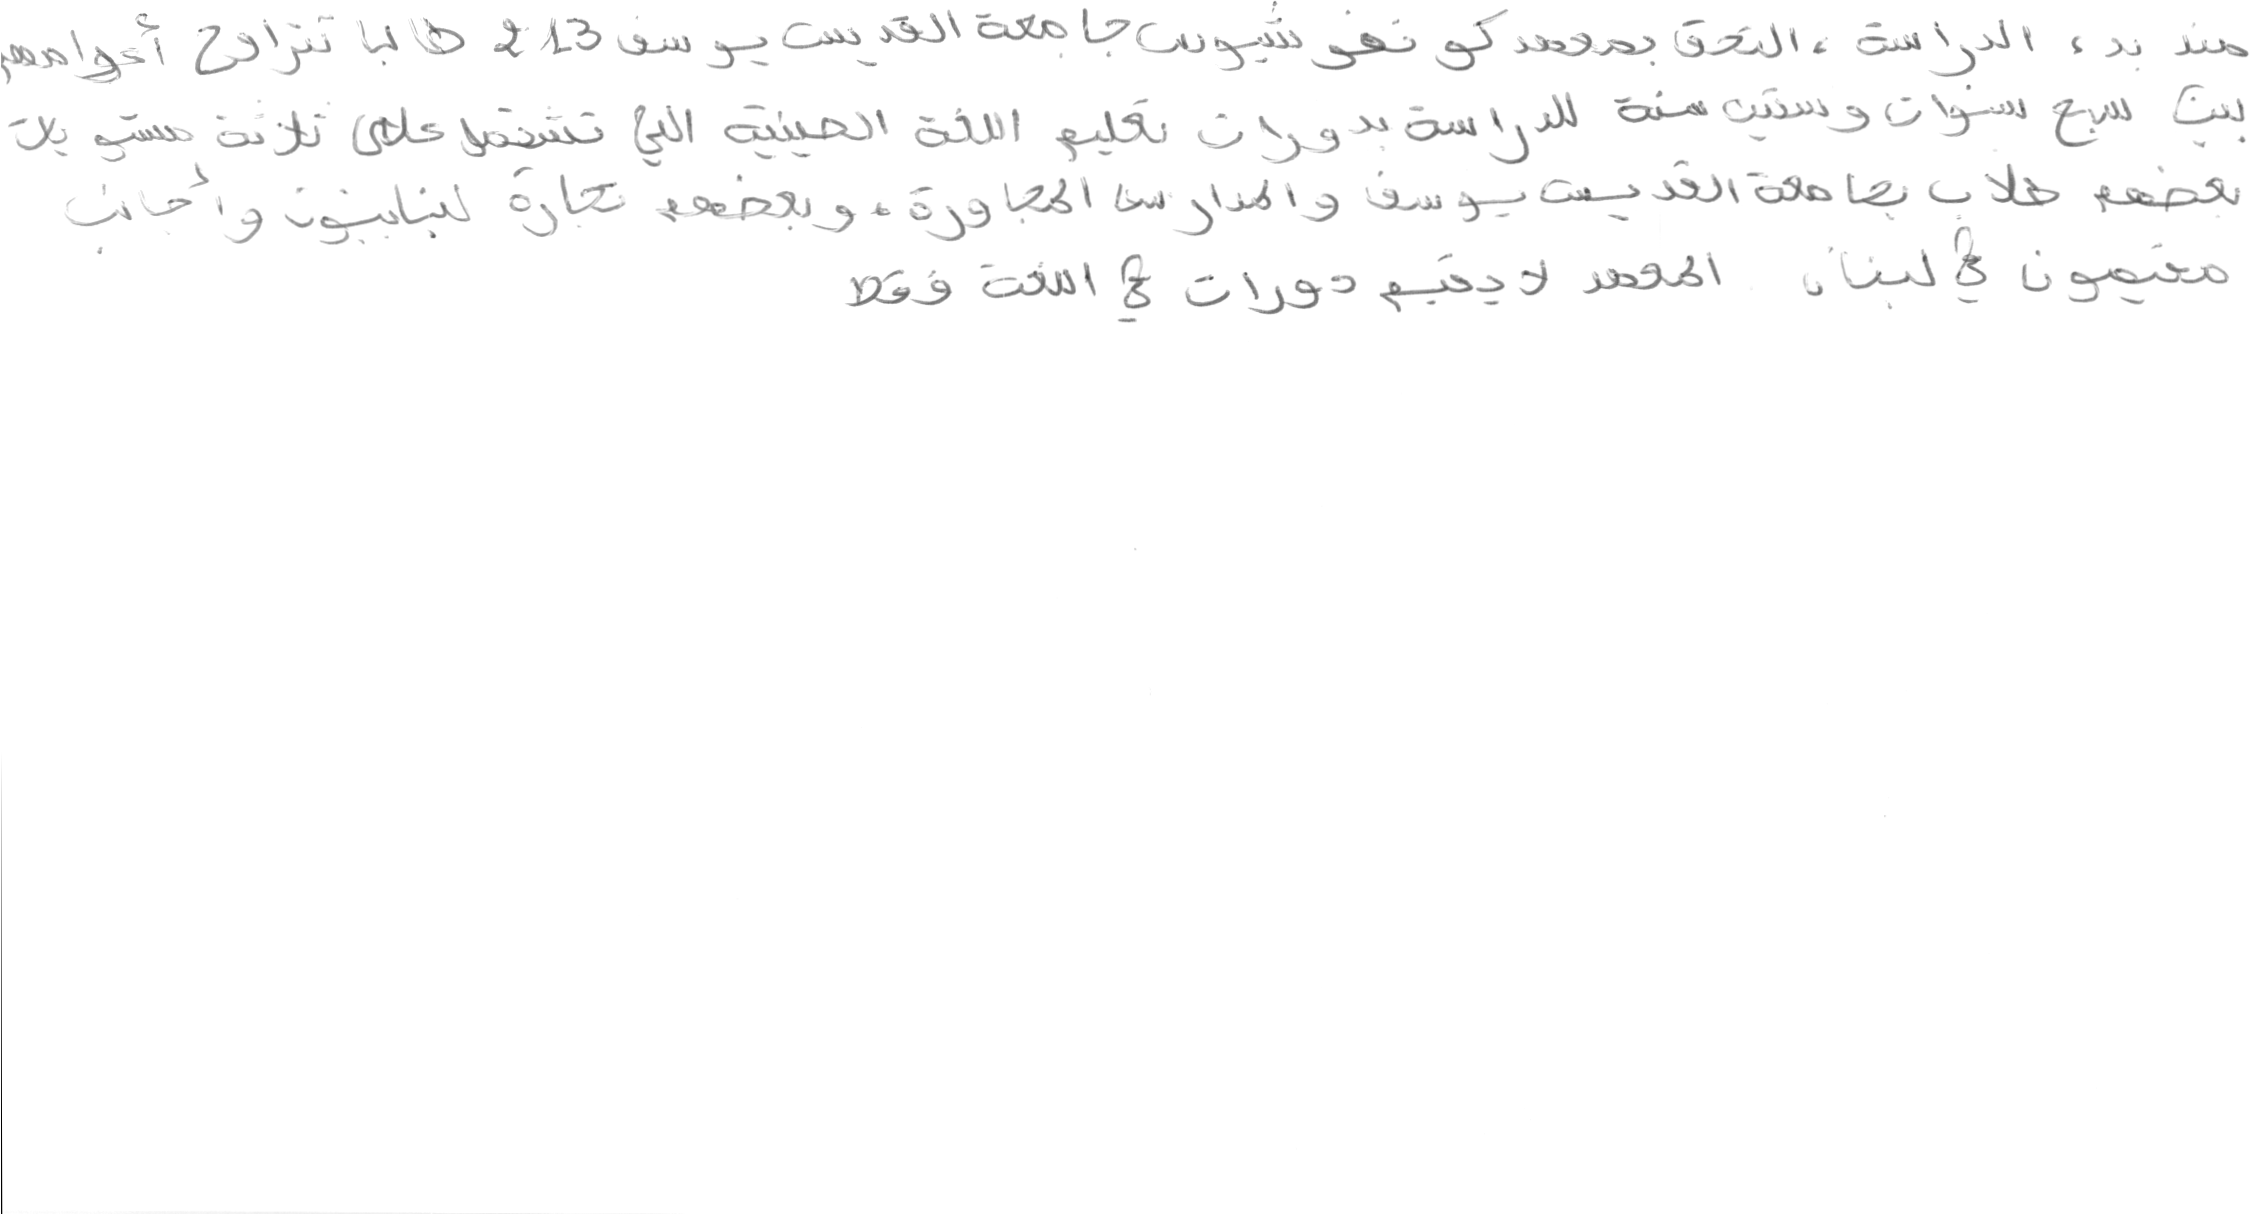 منذ بدء الدراسة، التحق بمعهد كونفوشيوس جامعة القديس يوسف 213 طالبا تتراوح أعوامهم
بين سبع سنوات وستين سنة للدراسة بدورات تعليم اللغة الصينية التي تشتمل على ثلاثة مستويات
بعضهم طلاب بجامعة القديس يوسف والمدارس المجاورة، وبعضهم تجارة لبنانيون وأجانب
مقيمون في لبنان. المعهد لا يقيم دورات في اللغة فقط